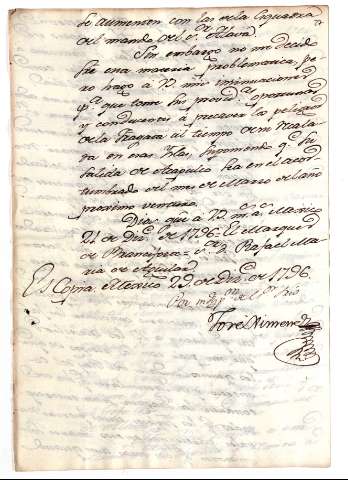 se aumenten con las de la Esquadra
del mando del S.or Alava.
Sin embargo no me decido
en una materia problematica, pe
ro hago á V. mis insinuaciones
p.a que tome las provid.as oportunas
y conducentes á precaver los peligros
de la Fragata al tiempo de su Recala
da en esas Yslas, suponiendo q.e su
salida de Acapulco sea en el acos
tumbrado del mes de Marzo del año
proximo venturo.
Dios gue á V. m.s a.s Mexico
21 de Dic.e de 1796. El Marques
de Branciforte = S.or D. Rafael Ma
ria de Aguilar.
Es Copia. Mexico 29 de Dic.e de 1796.
Por del S.or Srio
José Ximenez